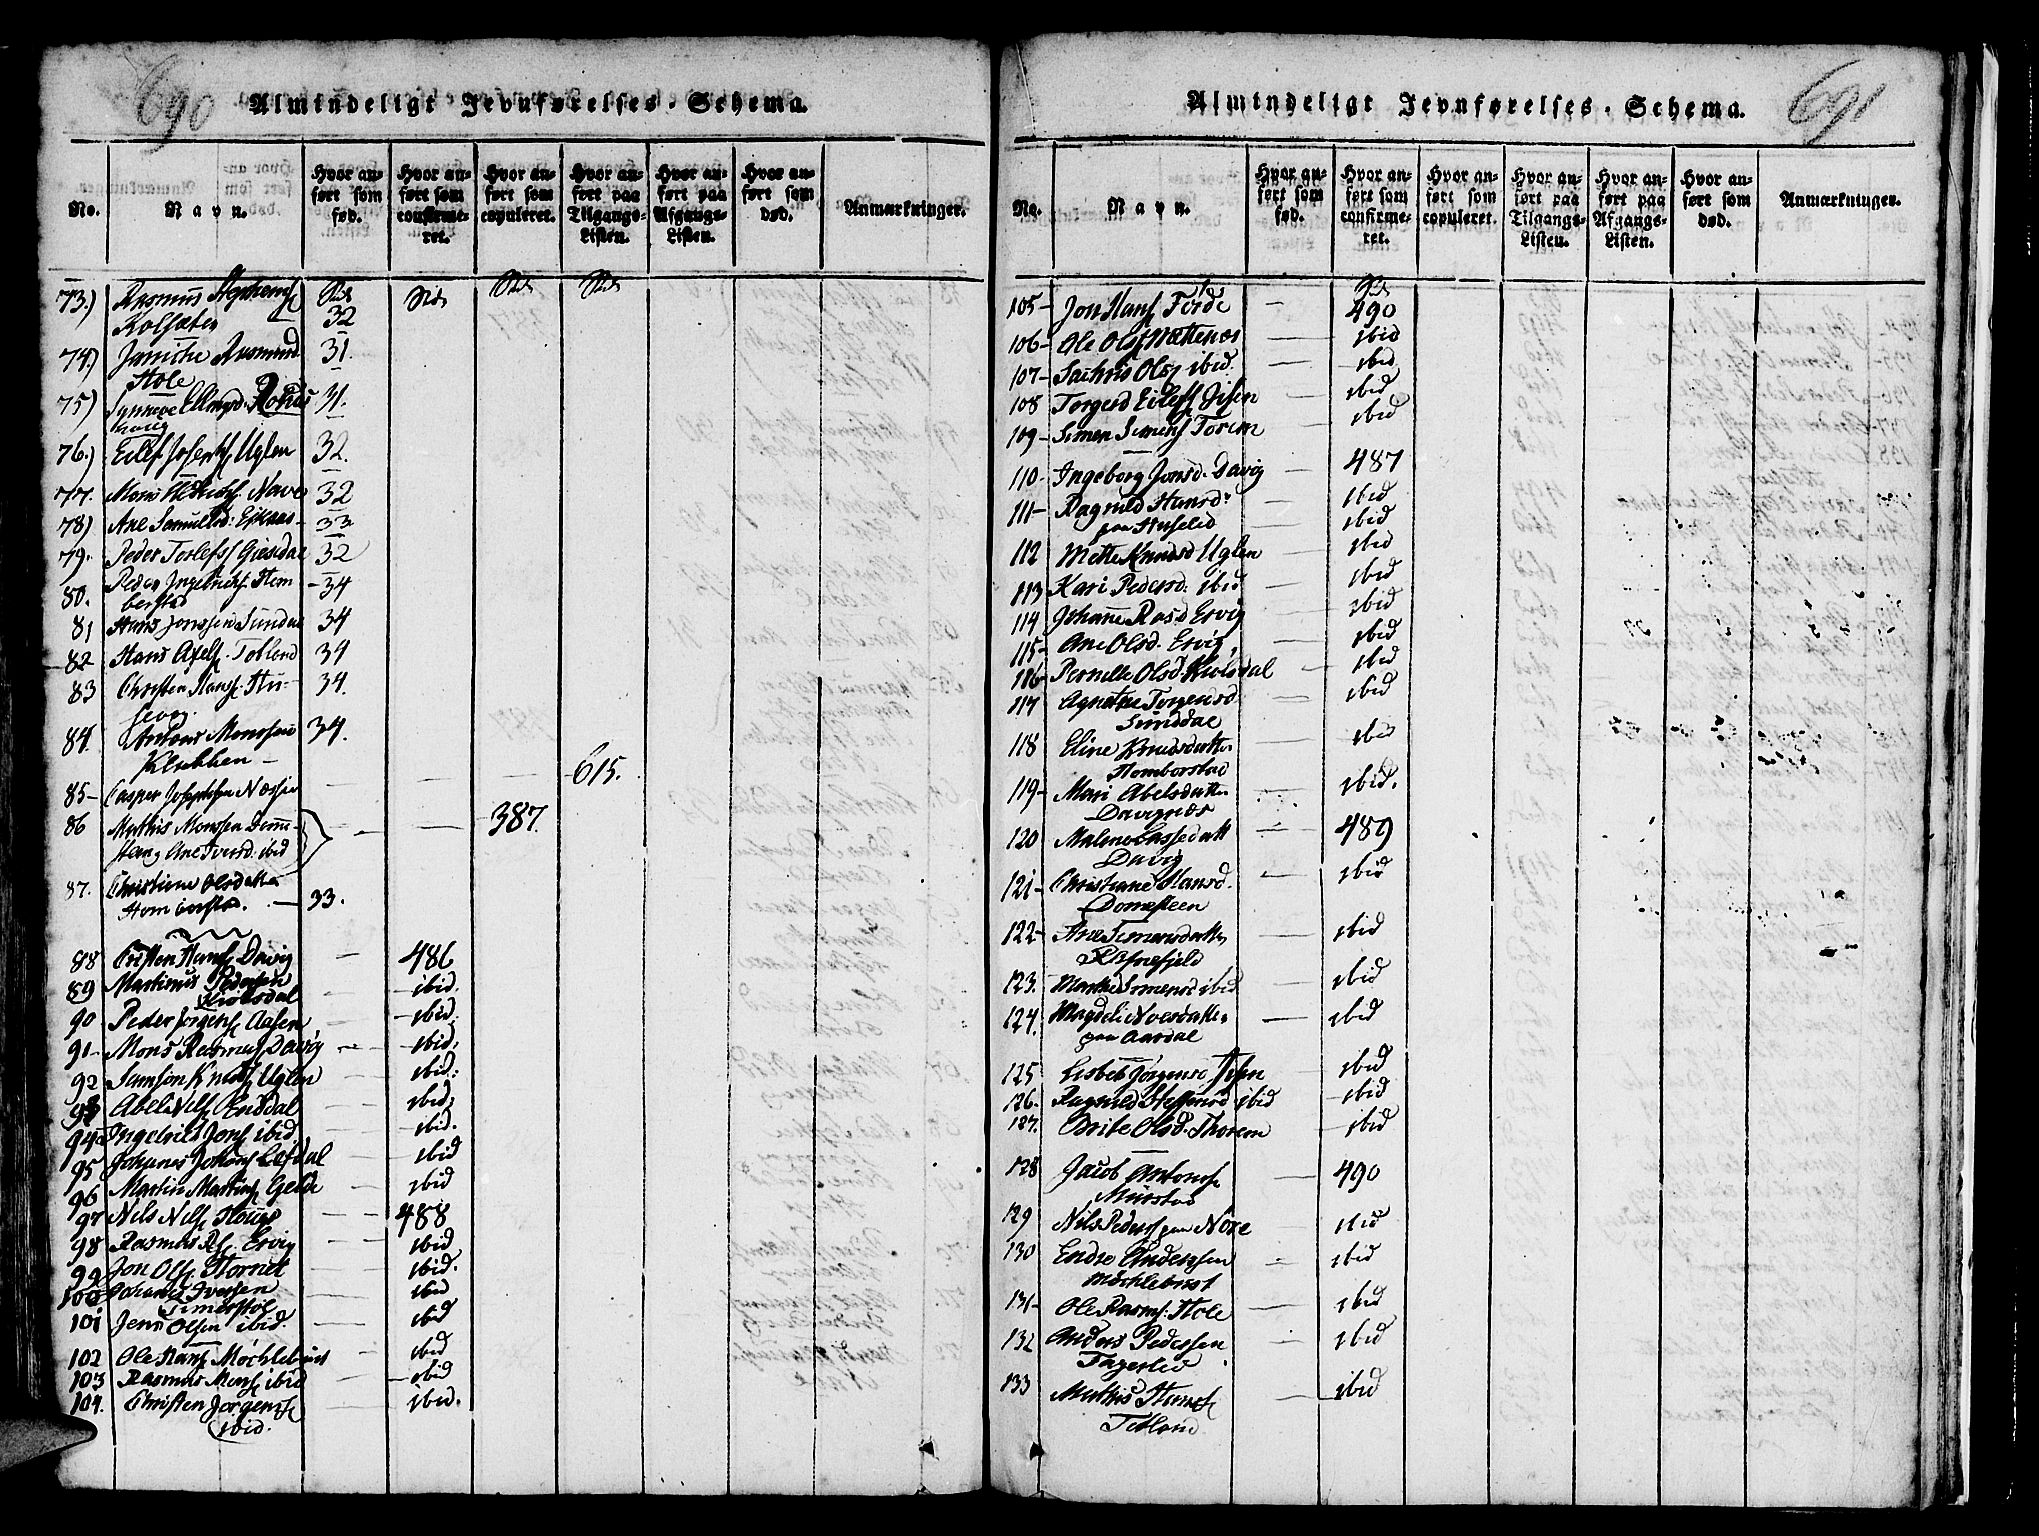 690
Almindeligt Jevnførelses-Schema.
No. Navn. Hvor anført som fød. Hvor anført som confirmeret. Hvor anført som copuleret. Hvor anført paa Tilgangs-Listen. Hvor anført paa Afgangs-Listen. Hvor anført som død. Anmærkninger.
73.) Rasmus
Kolsæter 32
74) 31.
Hole
75) Synneve 31.
76.) Eilef Josephs. Uglen 32.
77. Mons Nave 32
78) Ane Samuelsd: Eikaas 33
79. Peder Torlefs. Giesdal 32
80. Peder Ingebricts. Hom 34
berstad
81 Hans Jonssen Sunddal 34
82 Hans Axels. Tobland 34
83 Christen Hans. Hu- 34.
sevog.
84. Antons Monssen 34.
Klubben —
85- Casper Josephsen Næssen — — — 615.
86 Mathis Monssen Demme- — — 387.
stang Ane Iversd. ibid
87. Christiane Olsdatter
Homberstad. — 33.
88 Cristen Hans. Davig — 486
89 Martinus Pedersen — ibid.
Kiolsdal
90 Peder Jørgens. Aasen — ibid.
91- Mons Rasmus. Davig — ibid.
92 Samson Knuds. Uglen — ibid.
93 Abel Nils. Endsdal — ibid.
94 Ingebrict Jons. ibid — ibid.
95 Johanes Johans. Lefdal — ibid
96 Martin Martins. Gelde — ibid
97 Nils Nils. Houge — 488
98 Rasmus Rs. Ervig — ibid
99 Jon Ols. Hornet — ibid.
100 Johanes Iversen — ibid
Simerstøl
101 Jens Olsen ibid. — ibid
102 Ole Hans. Mochlebust — ibid
103 Rasmus Mons. ibid — ibid
104. Christen Jørgens. — ibid.
ibid.
691
Almindeligt Jevnførelses-Schema.
No. Navn. Hvor anført som fød. Hvor anført som confirmeret. Hvor anført som copuleret. Hvor anført paa Tilgangs-Listen. Hvor anført paa Afgangs-Listen. Hvor anført som død. Anmærkninger.
105- Jon Hans. Förde — 490
106- Ole Ols. Mættenæs — ibid
107- Ols. ibid. — ibid
108 Torgerd Eilefs. — ibid
109- Simen Simens. Torem — ibid
110- Ingeborg Jonsd. Davig — 487
111- Ragnild Hansd. — ibid
paa Huselid ibid
112 Mette Knudsd Uglen ibid
113 Kari Pedersd: ibid — ibid
114 Johane Rasd Ervig ibid
115- Ane Olsd. Ervig, — ibid
116- Pernille Olsd. Kiolsdal — ibid
117 Agnethe Torgersd — ibid
Sunddal
118 Eline Knudsdatter — ibid
Homborstad
119- Mari Abelsdatter — ibid.
Davignæs
120 Malene Lassedatt — 489
Davig
121- Christiane Hansd. — ibid
Domesteen
122- Ane Simensdatter — ibid
123. Marthe Simensd ibid — ibid
124. Magdeli Noesdatter — ibid
paa Aardal
125 Lisbeth Jørgensd — ibid
126. Ragnild Steffensd ibid — ibid
127. Brite Olsd. Thorem — ibid
128 Jacob Antons. — 490
Murstad
129 Nils Peders. paa Nore — ibid
130 Endre Anderssen — ibid
Mochlebust
131- Ole Rasms: Hole — ibid
132 Anders Pederssen — ibid
Fagerlid
133 Mathis Hans. — ibid
Tobland